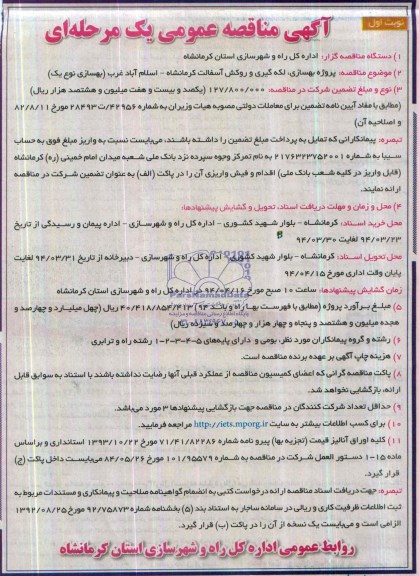 نوبت اول
آگهی مناقصه عمومی یک مرحله‌ای
۱) دستگاه مناقصه گزار: اداره کل راه و شهرسازی استان کرمانشاه
۲) موضوع مناقصه: پروژه بهسازی، لکه گیری و روکش آسفالت کرمانشاه - اسلام آباد غرب (بهسازی نوع یک)
۳) نوع و مبلغ تضمین شرکت در مناقصه: ۱۲۷/۸۰۰/۰۰۰ (یکصد و بیست و هفت میلیون و هشتصد هزار ریال)
(مطابق با مفاد آیین نامه تضمین برای معاملات دولتی مصوبه هیات وزیران به شماره ۴۲۹۵۶/ت۲۸۴۹۳ مورخ ۸۲/۸/۱۱
و اصلاحیه آن)
تبصره: پیمانکارانی که تمایل به پرداخت مبلغ تضمین را داشته باشند، می‌بایست نسبت به واریز مبلغ فوق به حساب
سیبا به شماره ۲۱۷۶۳۲۳۷۵۲۰۰۱ به نام تمرکز وجوه سپرده نزد بانک ملی شعبه میدان امام خمینی (ره) کرمانشاه
(قابل واریز در کلیه شعب بانک ملی) اقدام و فیش واریزی آن را در پاکت (الف) به عنوان تضمین شرکت در مناقصه
ارائه نمایند.
۴) محل و زمان و مهلت دریافت اسناد، تحویل و گشایش پیشنهادها:
محل خرید اسناد: کرمانشاه - بلوار شهید کشوری - اداره کل راه و شهرسازی - اداره پیمان و رسیدگی از تاریخ
۹۴/۰۳/۲۳ لغایت ۹۴/۰۳/۳۰
محل تحویل اسناد: کرمانشاه - بلوار شهید کشوری - اداره کل راه و شهرسازی - دبیرخانه از تاریخ ۹۴/۰۳/۳۱ لغایت
پایان وقت اداری مورخ ۹۴/۰۴/۱۵
زمان گشایش پیشنهادها: ساعت ۱۰ صبح مورخ ۹۴/۰۴/۱۶ در اداره کل راه و شهرسازی استان کرمانشاه
۵) مبلغ برآورد پروژه (مطابق با فهرست بهاء راه و باند ۹۴) ۴۰/۴۱۸/۸۵۴/۴۱۳ ریال (چهل میلیارد و چهارصد و
هجده میلیون و هشتصد و پنجاه و چهار هزار و چهارصد و سیزده ریال)
۶) رشته و گروه پیمانکاران مورد نظر، بومی و دارای پایه‌های ۵-۴-۳-۲-۱ رشته راه و ترابری
۷) هزینه چاپ آگهی بر عهده برنده مناقصه است.
۸) پاکت مناقصه گرانی که اعضای کمیسیون مناقصه از عملکرد قبلی آنها رضایت نداشته باشند با استناد به سوابق قابل
ارائه، بازگشایی نخواهد شد.
۹) حداقل تعداد شرکت کنندگان در مناقصه جهت بازگشایی پیشنهادها ۳ مورد می‌باشد.
۱۰) برای کسب اطلاعات بیشتر به سایت http://iets.mporg.ir مراجعه فرمایید.
۱۱) کلیه اوراق آنالیز قیمت (تجزیه بها) پیرو نامه شماره ۷۱/۴۱/۸۲۲۸۶ مورخ ۱۳۹۳/۱۰/۲۲ استانداری و براساس
ماده ۱۵-۱ دستور العمل شرکت در مناقصه به شماره ۱۰۱/۹۵۵۷۹ مورخ ۸۴/۰۵/۲۶ می‌بایست داخل پاکت (ج)
قرار گیرد.
تبصره: جهت دریافت اسناد مناقصه ارائه درخواست کتبی به انضمام گواهینامه صلاحیت و پیمانکاری و مستندات مربوط به
ثبت اطلاعات ظرفیت کاری و ریالی در سامانه ساجار به استناد بند (۵) بخشنامه شماره ۹۲/۷۵۸۷۳ مورخ ۱۳۹۲/۰۸/۲۵
الزامی است و می‌بایست یک نسخه از آن را در پاکت (ب) قرار گیرد.
روابط عمومی اداره کل راه و شهرسازی استان کرمانشاه